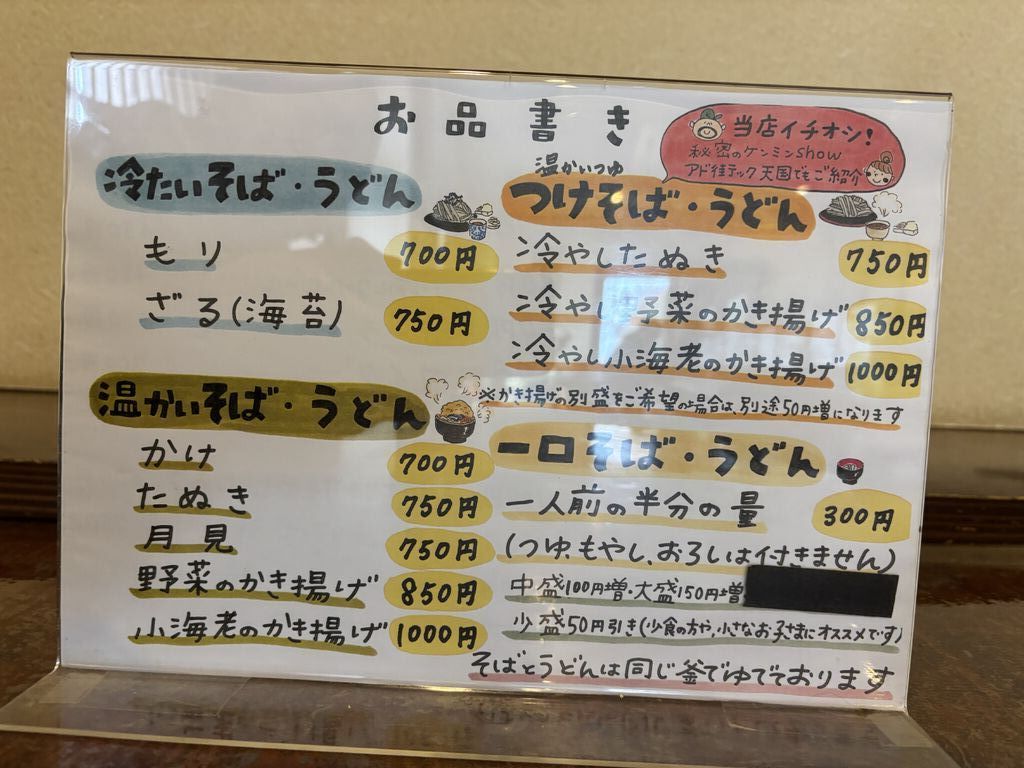 お品書き
当店イチオシ!
秘密のケンミンshow
アド街テック天国でもご紹介
冷たいそば・うどん
もり 700円
ざる(海苔) 750円
温かいそば・うどん
かけ 700円
たぬき 750円
月見 750円
野菜のかき揚げ 850円
小海老のかき揚げ 1000円
温かいつゆ
つけそば・うどん
冷やしたぬき 750円
冷やし野菜のかき揚げ 850円
冷やし小海老のかき揚げ 1000円
※かき揚げの別盛をご希望の場合は、別途50円増になります
一口そば・うどん
一人前の半分の量 300円
(つゆ、もやし、おろしは付きません)
中盛100円増・大盛150円増
少盛50円引き(少食の方や、小さなお子さまにオススメです)
そばとうどんは同じ釜でゆでております